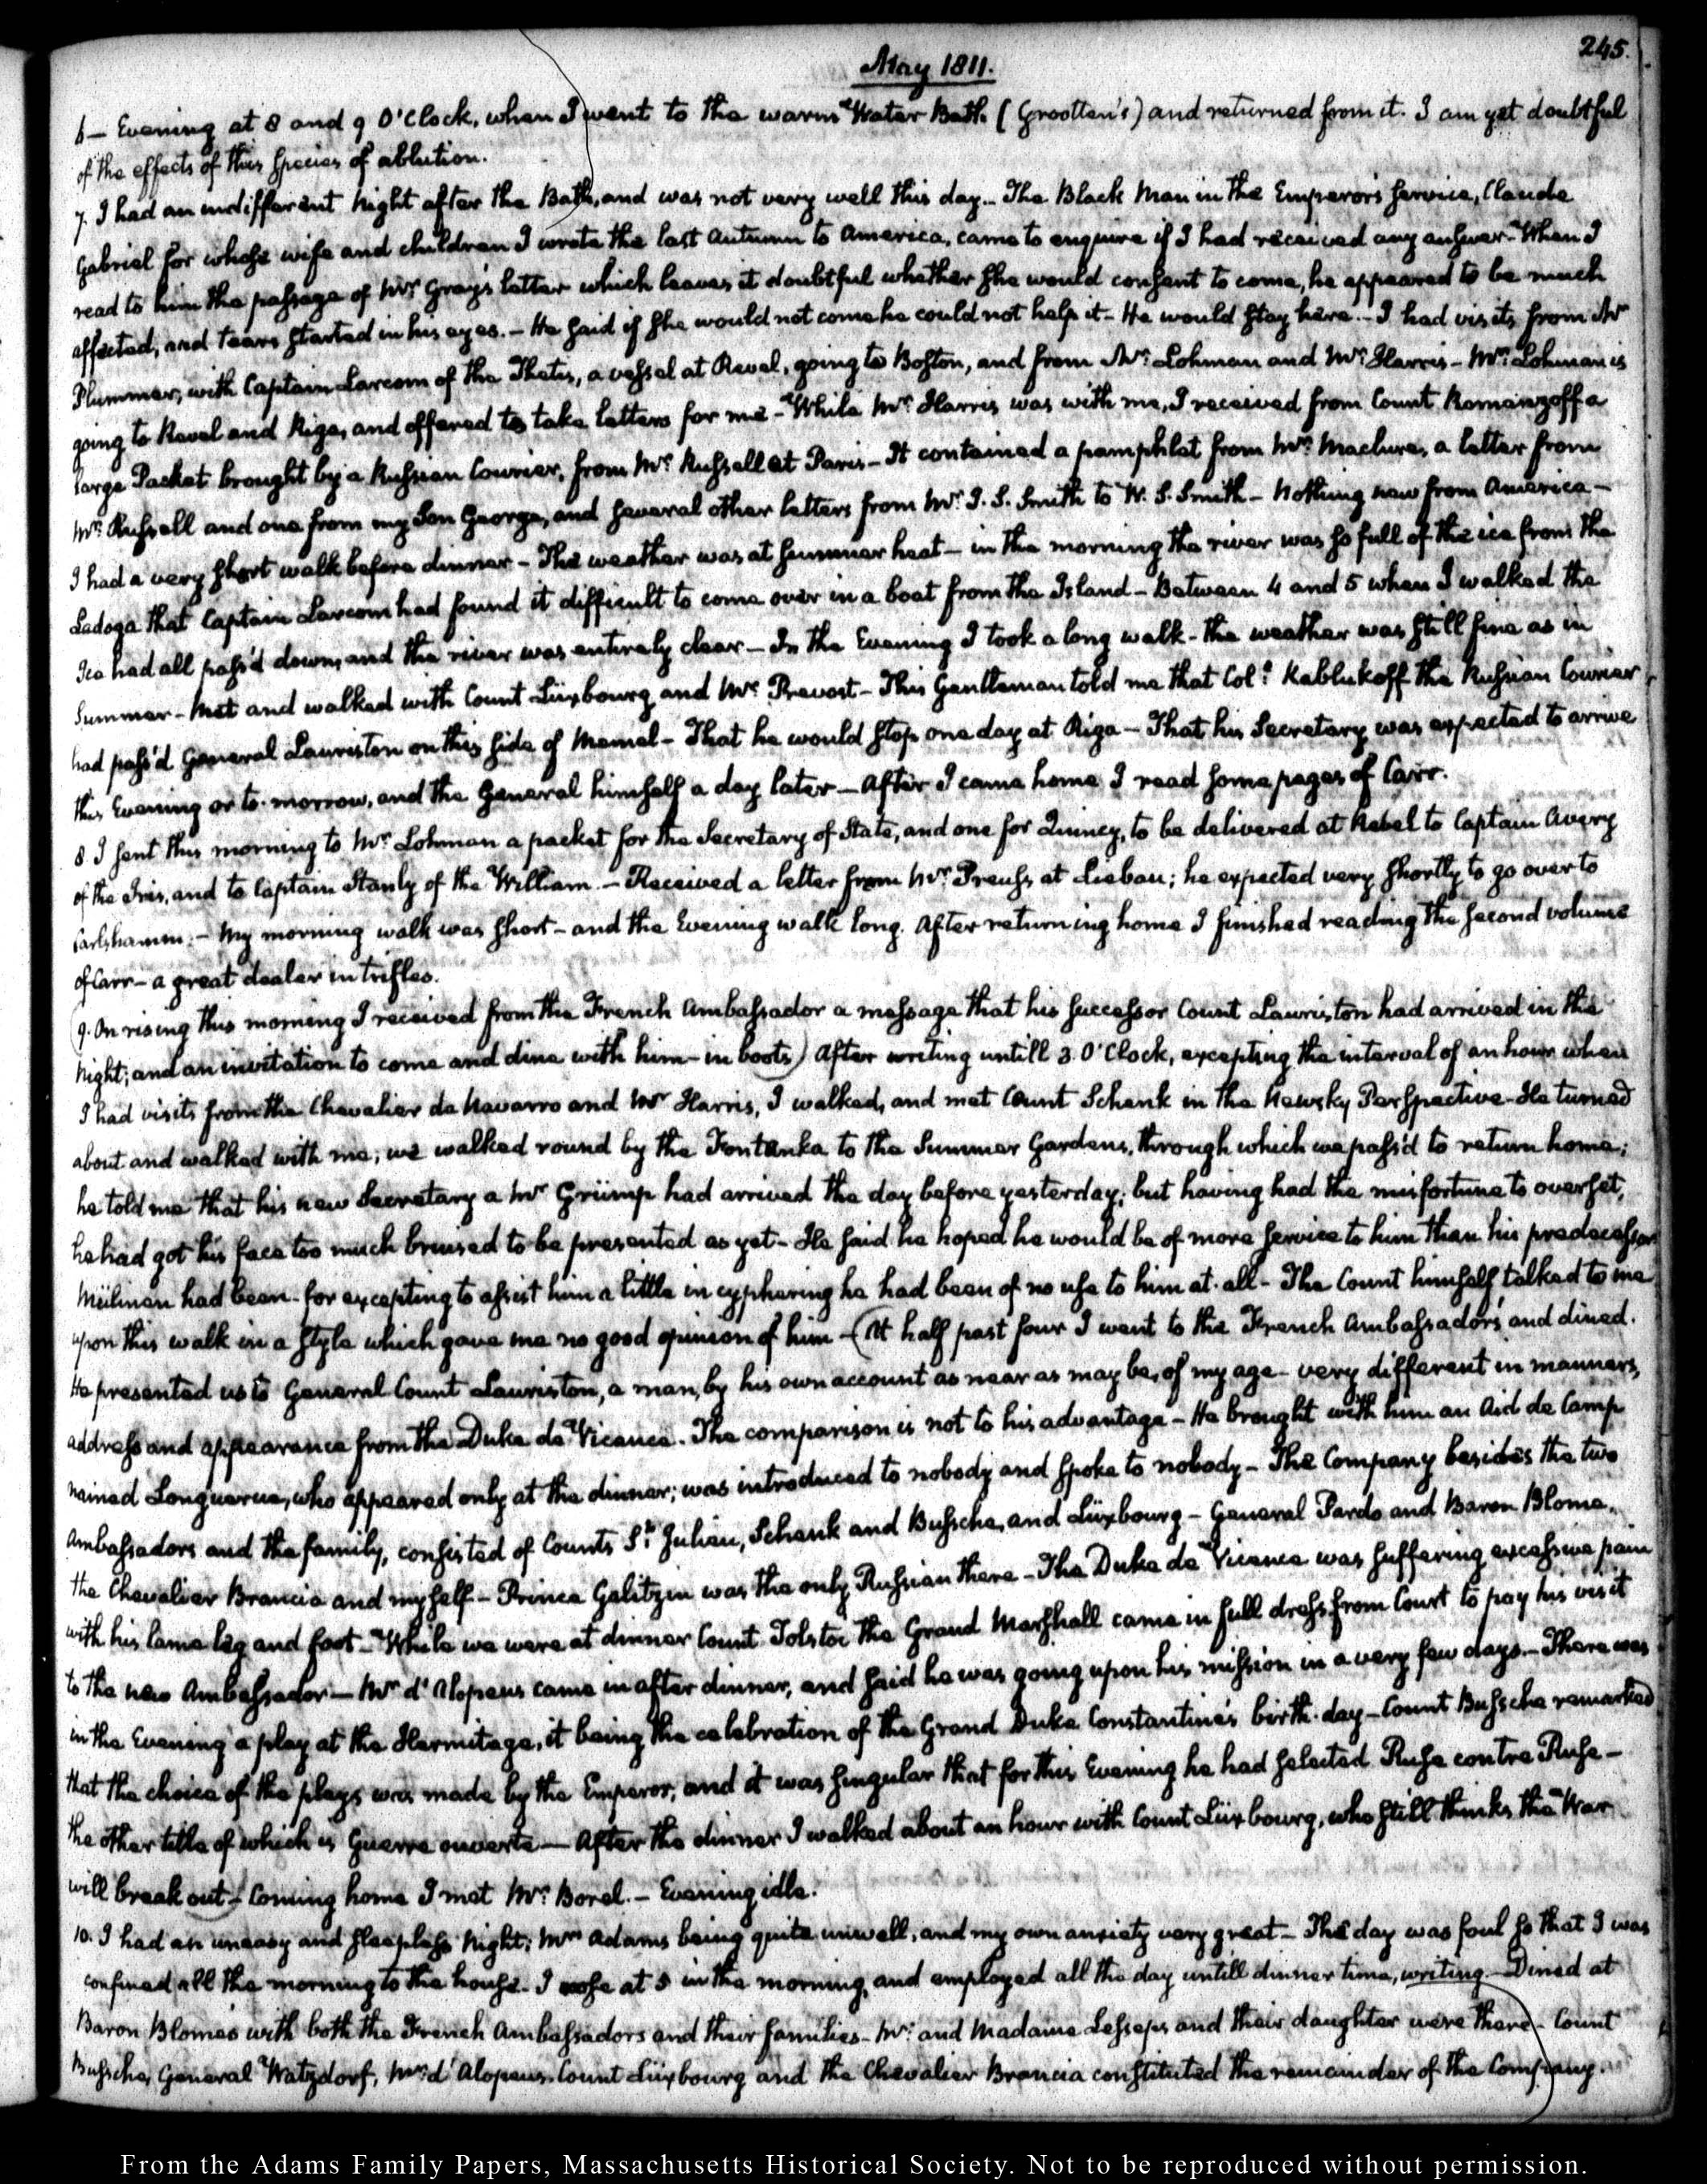 245.
May 1811.
6 — Evening at 8 and 9 O'Clock, when I went to the warm Water Bath (Grootten's) and returned from it. I am yet doubtful
of the effects of this species of ablution.
7. I had an indifferent night after the Bath, and was not very well this day.— The Black Man in the Emperor's service, Claude
Gabriel for whose wife and children I wrote the last Autumn to America, came to enquire if I had received any answer— When I
read to him the passage of Mr Gray's letter which leaves it doubtful whether she would consent to come, he appeared to be much
affected, and tears started in his eyes.— He said if she would not come he could not help it— He would stay here.— I had visits from Mr
Plummer, with Captain Larcom of the Thetis, a vessel at Revel, going to Boston, and from Mr Lohman and Mr Harris— Mr Lohman is
going to Revel and Riga, and offered to take letters for me— While Mr Harris was with me, I received from Count Romanzoff a
large Packet brought by a Russian Courier, from Mr Russell at Paris— It contained a pamphlet from Mr Maclure, a letter from
Mr Russell and one from my Son George, and several other letters from Mr J. S. Smith to W. S. Smith— Nothing new from America—
I had a very short walk before dinner— The weather was at summer heat— in the morning the river was so full of the ice from the
Ladoga that Captain Larcom had found it difficult to come over in a boat from the Island— Between 4 and 5 when I walked the
Ice had all pass'd down, and the river was entirely clear— In the Evening I took a long walk— the weather was still fine as in
Summer— Met and walked with Count Lüxbourg and Mr Prevost— This Gentleman told me that Col: Kablukoff the Russian Courier
had pass'd General Lauriston on this side of Memel— That he would stop one day at Riga— That his Secretary was expected to arrive
this Evening or to-morrow, and the General himself a day later— After I came home I read some pages of Carr.
8 I sent this morning to Mr Lohman a packet for the Secretary of State, and one for Quincy, to be delivered at Revel to Captain Avery
of the Iris, and to Captain Stanly of the William.— Received a letter from Mr Preuss at Liebau; he expected very shortly to go over to
Carlshamm.— My morning walk was short— and the Evening walk long. After returning home I finished reading the second volume
of Carr— a great dealer in trifles.
9. On rising this morning I received from the French Ambassador a message that his successor Count Lauriston had arrived in the
night; and an invitation to come and dine with him— in boots) After writing untill 3 O'Clock, excepting the interval of an hour when
I had visits from the Chevalier de Navarro and Mr Harris, I walked, and met Count Schenk in the Newsky Perspective— He turned
about and walked with me; we walked round by the Fontanka to the Summer Gardens, through which we pass'd to return home;
he told me that his new Secretary a Mr Grümp had arrived the day before yesterday; but having had the misfortune to overset,
he had got his face too much bruised to be presented as yet— He said he hoped he would be of more service to him than his predecessor
Mülinen had been— for excepting to assist him a little in cyphering he had been of no use to him at all— The Count himself talked to me
upon this walk in a style which gave me no good opinion of him— (At half past four I went to the French Ambassador's and dined.
He presented us to General Count Lauriston, a man, by his own account as near as may be, of my age— very different in manners,
address and appearance from the Duke de Vicence. The comparison is not to his advantage— He brought with him an Aid de Camp
named Longuerue, who appeared only at the dinner; was introduced to nobody and spoke to nobody— The Company besides the two
Ambassadors and the family, consisted of Counts St Julien, Schenk and Bussche, and Lüxbourg— General Pardo and Baron Blome,
the Chevalier Brancia and myself— Prince Galitzin was the only Russian there— The Duke de Vicence was suffering excessive pain
with his lame leg and foot— While we were at dinner Count Tolstoi the Grand Marshall came in full dress from Court to pay his visit
to the new Ambassador— Mr d'Alopeus came in after dinner, and said he was going upon his mission in a very few days.— There was
in the Evening a play at the Hermitage, it being the celebration of the Grand Duke Constantine's birth-day— Count Bussche remarked
that the choice of the plays was made by the Emperor, and it was singular that for this Evening he had selected Ruse contre Ruse—
the other title of which is Guerre ouverte— After the dinner I walked about an hour with Count Lüxbourg, who still thinks the War
will break out— Coming home I met Mr Borel.— Evening idle.
10. I had an uneasy and sleepless Night; Mrs Adams being quite unwell, and my own anxiety very great— The day was foul so that I was
confined all the morning to the house. I rose at 5 in the morning, and employed all the day untill dinner time, writing— Dined at
Baron Blome's with both the French Ambassadors and their families— Mr and Madame Lesseps and their daughter were there— Count
Bussche, General Watzdorf, Mr d'Alopeus, Count Lüxbourg and the Chevalier Brancia constituted the remainder of the Company.
From the Adams Family Papers, Massachusetts Historical Society. Not to be reproduced without permission.